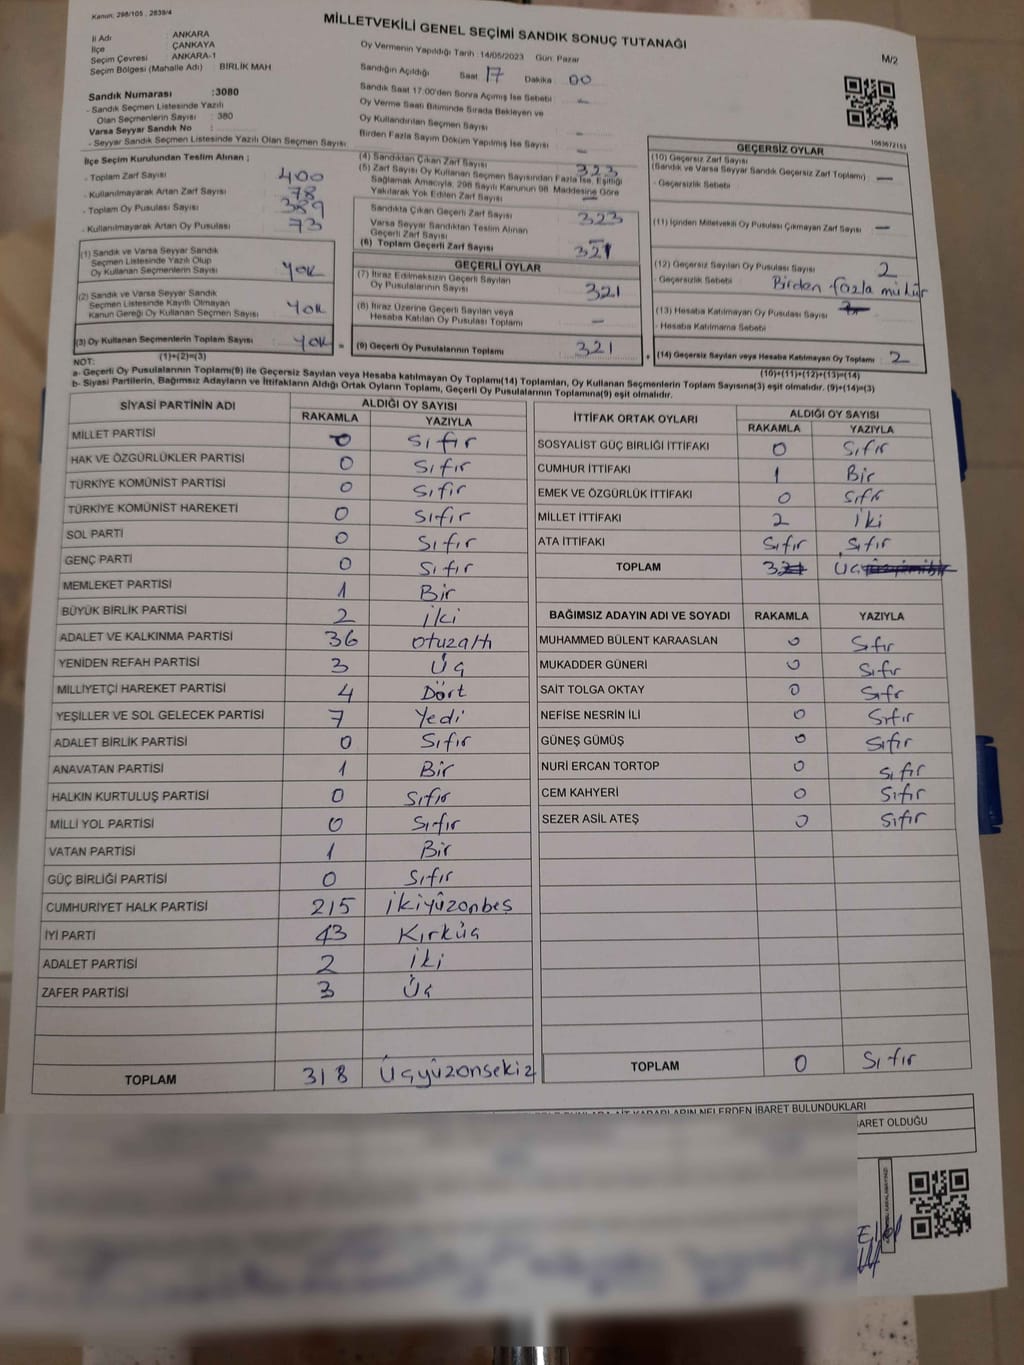 Kanun: 298/105 , 2839/4
MİLLETVEKİLİ GENEL SEÇİMİ SANDIK SONUÇ TUTANAĞI
M/2
İl Adı : ANKARA
İlçe : ÇANKAYA
Seçim Çevresi : ANKARA-1
Seçim Bölgesi (Mahalle Adı) : BİRLİK MAH
Sandık Numarası :3080
- Sandık Seçmen Listesinde Yazılı
Olan Seçmenlerin Sayısı : 380
Varsa Seyyar Sandık No :
- Seyyar Sandık Seçmen Listesinde Yazılı Olan Seçmen Sayısı
Oy Vermenin Yapıldığı Tarih :14/05/2023 Gün: Pazar
Sandığın Açıldığı Saat 17 Dakika 00
Sandık Saat 17.00'den Sonra Açılmış İse Sebebi : -
Oy Verme Saati Bitiminde Sırada Bekleyen ve
Oy Kullandırılan Seçmen Sayısı : -
Birden Fazla Sayım Döküm Yapılmış İse Sayısı : -
1083672153
İlçe Seçim Kurulundan Teslim Alınan ;
- Toplam Zarf Sayısı : 400
- Kullanılmayarak Artan Zarf Sayısı : 78
- Toplam Oy Pusulası Sayısı : 389
- Kullanılmayarak Artan Oy Pusulası : 73
(1) Sandık ve Varsa Seyyar Sandık
Seçmen Listesinde Yazılı Olup
Oy Kullanan Seçmenlerin Sayısı : YOK
(2) Sandık ve Varsa Seyyar Sandık
Seçmen Listesinde Kayıtlı Olmayan
Kanun Gereği Oy Kullanan Seçmen Sayısı : YOK
(3) Oy Kullanan Seçmenlerin Toplam Sayısı : YOK
(1)+(2)=(3)
(4) Sandıktan Çıkan Zarf Sayısı : 323
(5) Zarf Sayısı Oy Kullanan Seçmen Sayısından Fazla İse, Eşitliği
Sağlamak Amacıyla, 298 Sayılı Kanunun 98. Maddesine Göre
Yakılarak Yok Edilen Zarf Sayısı : -
Sandıkta Çıkan Geçerli Zarf Sayısı : 323
Varsa Seyyar Sandıktan Teslim Alınan
Geçerli Zarf Sayısı : -
(6) Toplam Geçerli Zarf Sayısı : 321
GEÇERLİ OYLAR
(7) İtiraz Edilmeksizin Geçerli Sayılan
Oy Pusulalarının Sayısı : 321
(8) İtiraz Üzerine Geçerli Sayılan veya
Hesaba Katılan Oy Pusulası Toplamı : -
= (9) Geçerli Oy Pusulalarının Toplamı : 321
GEÇERSİZ OYLAR
(10) Geçersiz Zarf Sayısı
(Sandık ve Varsa Seyyar Sandık Geçersiz Zarf Toplamı) : -
- Geçersizlik Sebebi :
(11) İçinden Milletvekili Oy Pusulası Çıkmayan Zarf Sayısı : -
(12) Geçersiz Sayılan Oy Pusulası Sayısı : 2
- Geçersizlik Sebebi : Birden fazla mühür
(13) Hesaba Katılmayan Oy Pusulası Sayısı :
- Hesaba Katılmama Sebebi :
+ (14) Geçersiz Sayılan veya Hesaba Katılmayan Oy Toplamı : 2
(10)+(11)+(12)+(13)=(14)
NOT:
a- Geçerli Oy Pusulalarının Toplamı(9) ile Geçersiz Sayılan veya Hesaba katılmayan Oy Toplamı(14) Toplamları, Oy Kullanan Seçmenlerin Toplam Sayısına(3) eşit olmalıdır. (9)+(14)=(3)
b- Siyasi Partilerin, Bağımsız Adayların ve İttifakların Aldığı Ortak Oyların Toplamı, Geçerli Oy Pusulalarının Toplamına(9) eşit olmalıdır.
SİYASİ PARTİNİN ADI ALDIĞI OY SAYISI
RAKAMLA YAZIYLA
MİLLET PARTİSİ 0 Sıfır
HAK VE ÖZGÜRLÜKLER PARTİSİ 0 Sıfır
TÜRKİYE KOMÜNİST PARTİSİ 0 Sıfır
TÜRKİYE KOMÜNİST HAREKETİ 0 Sıfır
SOL PARTİ 0 Sıfır
GENÇ PARTİ 0 Sıfır
MEMLEKET PARTİSİ 1 Bir
BÜYÜK BİRLİK PARTİSİ 2 iki
ADALET VE KALKINMA PARTİSİ 36 otuzaltı
YENİDEN REFAH PARTİSİ 3 Üç
MİLLİYETÇİ HAREKET PARTİSİ 4 Dört
YEŞİLLER VE SOL GELECEK PARTİSİ 7 Yedi
ADALET BİRLİK PARTİSİ 0 Sıfır
ANAVATAN PARTİSİ 1 Bir
HALKIN KURTULUŞ PARTİSİ 0 Sıfır
MİLLİ YOL PARTİSİ 0 Sıfır
VATAN PARTİSİ 1 Bir
GÜÇ BİRLİĞİ PARTİSİ 0 Sıfır
CUMHURİYET HALK PARTİSİ 215 ikiyüzonbeş
İYİ PARTİ 43 Kırküç
ADALET PARTİSİ 2 iki
ZAFER PARTİSİ 3 Üç
TOPLAM 318 Üçyüzonsekiz
İTTİFAK ORTAK OYLARI ALDIĞI OY SAYISI
RAKAMLA YAZIYLA
SOSYALİST GÜÇ BİRLİĞİ İTTİFAKI 0 Sıfır
CUMHUR İTTİFAKI 1 Bir
EMEK VE ÖZGÜRLÜK İTTİFAKI 0 Sıfır
MİLLET İTTİFAKI 2 iki
ATA İTTİFAKI Sıfır Sıfır
TOPLAM 3 Üç
BAĞIMSIZ ADAYIN ADI VE SOYADI RAKAMLA YAZIYLA
MUHAMMED BÜLENT KARAASLAN 0 Sıfır
MUKADDER GÜNERİ 0 Sıfır
SAİT TOLGA OKTAY 0 Sıfır
NEFİSE NESRİN İLİ 0 Sıfır
GÜNEŞ GÜMÜŞ 0 Sıfır
NURİ ERCAN TORTOP 0 Sıfır
CEM KAHYERİ 0 Sıfır
SEZER ASİL ATEŞ 0 Sıfır
TOPLAM 0 Sıfır
NELERDEN İBARET BULUNDUKLARI
BARET OLDUĞU